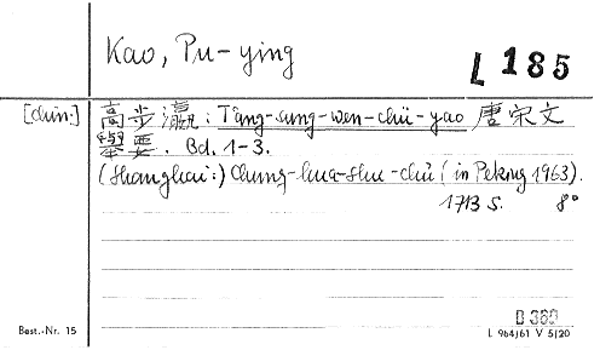 Kao, Pu-ying
L 185
[chin.] 高步瀛: T'ang-sung-wen-chü-yao 唐宋文
舉要. Bd. 1-3.
(Shanghai:) Chung-hua-shu-chü (in Peking 1963).
1713 S. 8°
D 360
Best.-Nr. 15
L 964/61 V 5/20